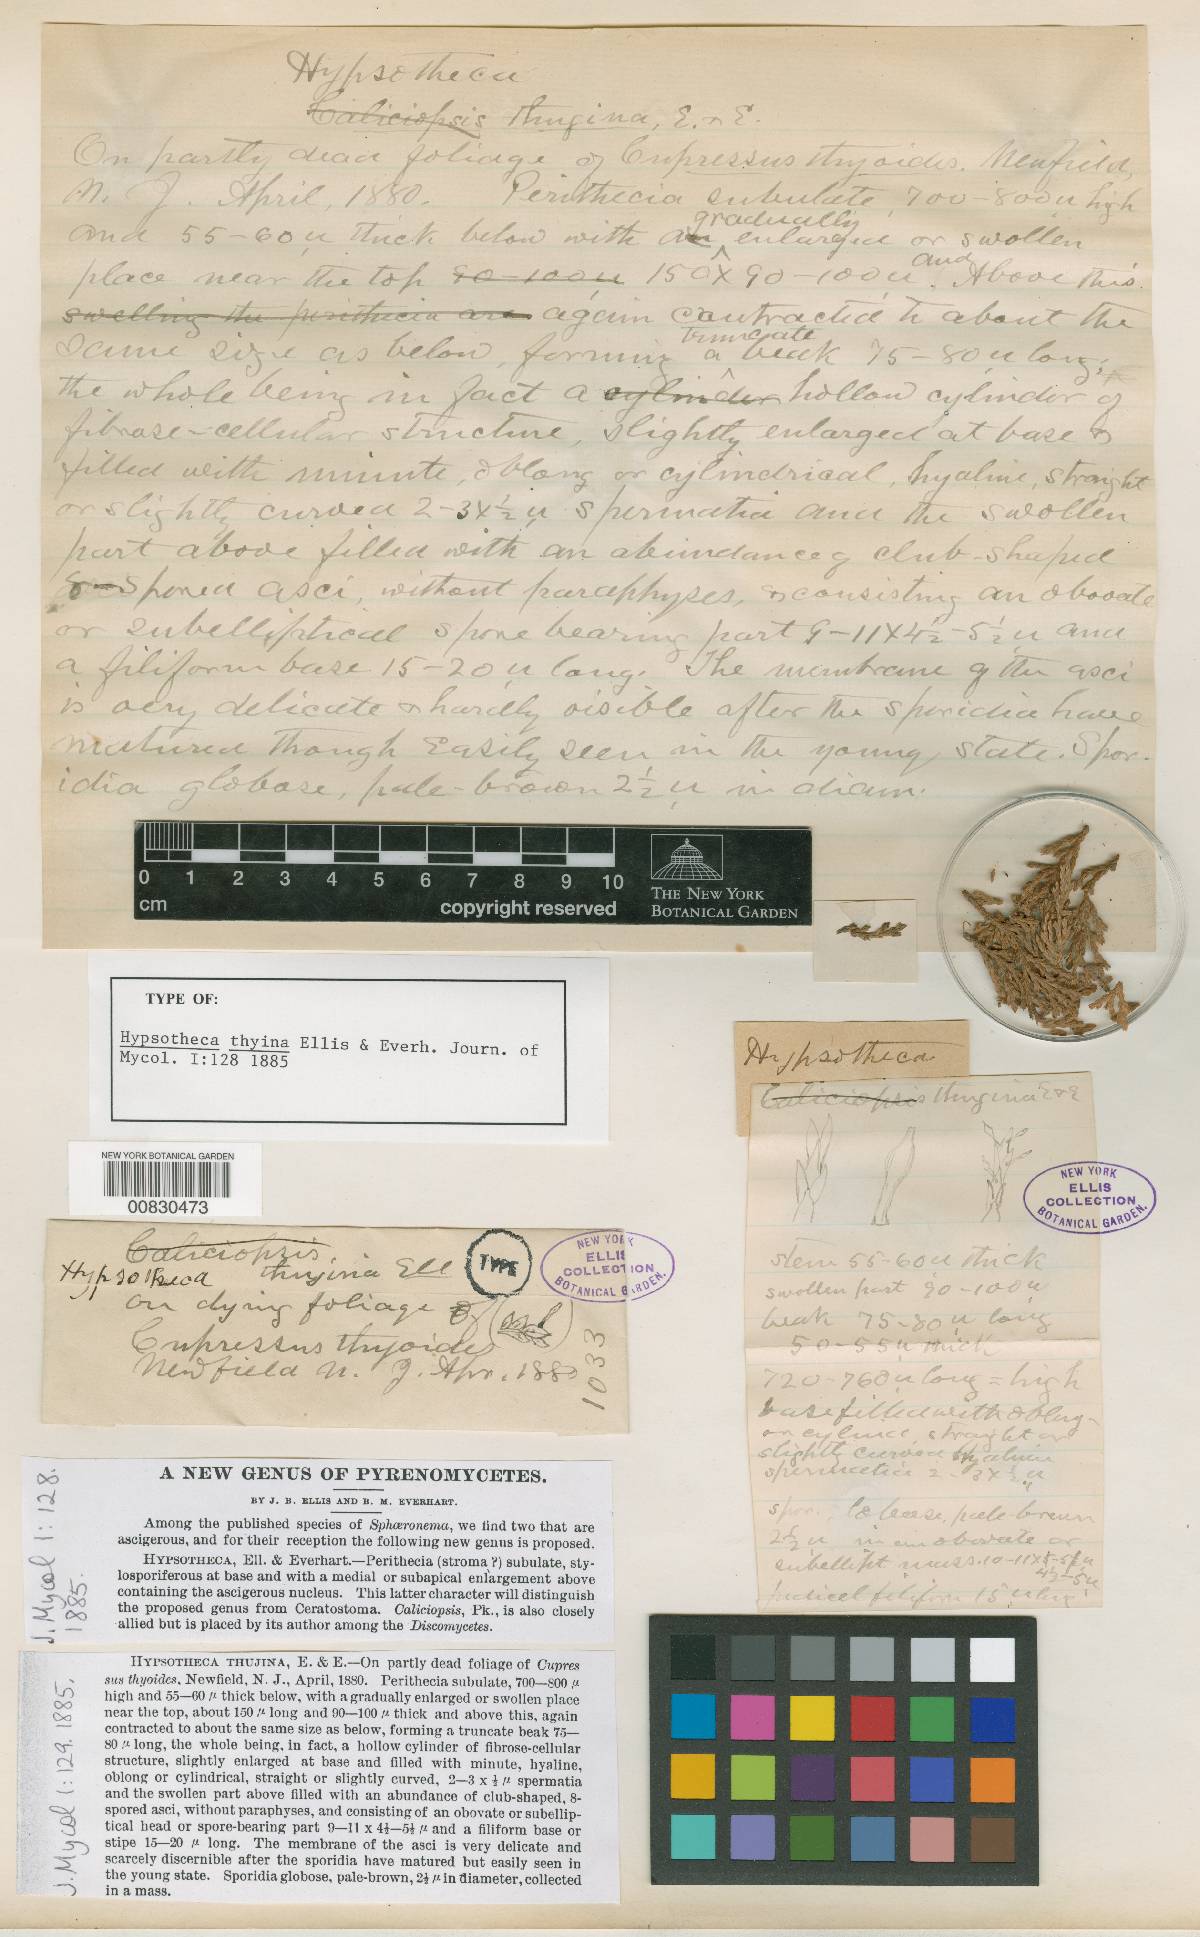 Hypsotheca
Caliciopsis thujina, E. & E.
On partly dead foliage of Cupressus thyoides. Newfield,
N. J. April, 1880. Perithecia subulate, 700-800 µ high
gradually
and 55-60 µ thick below with an enlarged or swollen
place near the top 90-100 µ 150 x 90-100 µ and Above this
swelling the perithecia are again contracted to about the
truncate
same size as below, forming a beak 75-80 µ long;
the whole being in fact a cylinder hollow cylinder of
fibrose-cellular structure, slightly enlarged at base &
filled with minute, oblong or cylindrical, hyaline, straight
or slightly curved 2-3 x ½ µ spermatia and the swollen
part above filled with an abundance of club-shaped
8-spored asci, without paraphyses, & consisting an obovate
or subelliptical spore bearing part 9-11 x 4½-5½ µ and
a filiform base 15-20 µ long. The membrane of the asci
is very delicate & hardly visible after the sporidia have
matured though easily seen in the young state. Spor-
idia globose, pale-brown 2½ µ in diam.
0 1 2 3 4 5 6 7 8 9 10
cm
copyright reserved
THE NEW YORK
BOTANICAL GARDEN
TYPE OF:
Hypsotheca thyina Ellis & Everh. Journ. of
Mycol. I:128 1885
NEW YORK BOTANICAL GARDEN
00830473
Caliciopsis
Hypsotheca thujina Ell
on dying foliage of
Cupressus thyoides
Newfield N. J. Apr. 1880
1033
TYPE
NEW YORK
ELLIS
COLLECTION
BOTANICAL GARDEN.
Hypsotheca
Caliciopsis thujina E & E
NEW YORK
ELLIS
COLLECTION
BOTANICAL GARDEN.
stem 55-60 µ thick
swollen part 90-100 µ
beak 75-80 µ long
50-55 µ thick
720-760 µ long = high
base filled with oblong-
or cylind, straight or
slightly curved hyaline
spermatia 2-3 x ½ µ
spor. globose, pale-brown
2½ µ in an obovate or
subellipt mass. 10-11 x 5-5½ µ
4½-5 µ
pedicel filiform 15 µ long
A NEW GENUS OF PYRENOMYCETES.
BY J. B. ELLIS AND B. M. EVERHART.
Among the published species of Sphæronema, we find two that are
ascigerous, and for their reception the following new genus is proposed.
HYPSOTHECA, Ell. & Everhart.—Perithecia (stroma ?) subulate, sty-
losporiferous at base and with a medial or subapical enlargement above
containing the ascigerous nucleus. This latter character will distinguish
the proposed genus from Ceratostoma. Caliciopsis, Pk., is also closely
allied but is placed by its author among the Discomycetes.
J. Mycol 1: 128.
1885.
HYPSOTHECA THUJINA, E. & E.—On partly dead foliage of Cupres
sus thyoides, Newfield, N. J., April, 1880. Perithecia subulate, 700—800 µ
high and 55—60 µ thick below, with a gradually enlarged or swollen place
near the top, about 150 µ long and 90—100 µ thick and above this, again
contracted to about the same size as below, forming a truncate beak 75—
80 µ long, the whole being, in fact, a hollow cylinder of fibrose-cellular
structure, slightly enlarged at base and filled with minute, hyaline,
oblong or cylindrical, straight or slightly curved, 2—3 x ½ µ spermatia
and the swollen part above filled with an abundance of club-shaped, 8-
spored asci, without paraphyses, and consisting of an obovate or subellip-
tical head or spore-bearing part 9—11 x 4½—5½ µ and a filiform base or
stipe 15—20 µ long. The membrane of the asci is very delicate and
scarcely discernible after the sporidia have matured but easily seen in
the young state. Sporidia globose, pale-brown, 2½ µ in diameter, collected
in a mass.
J. Mycol 1: 129. 1885.